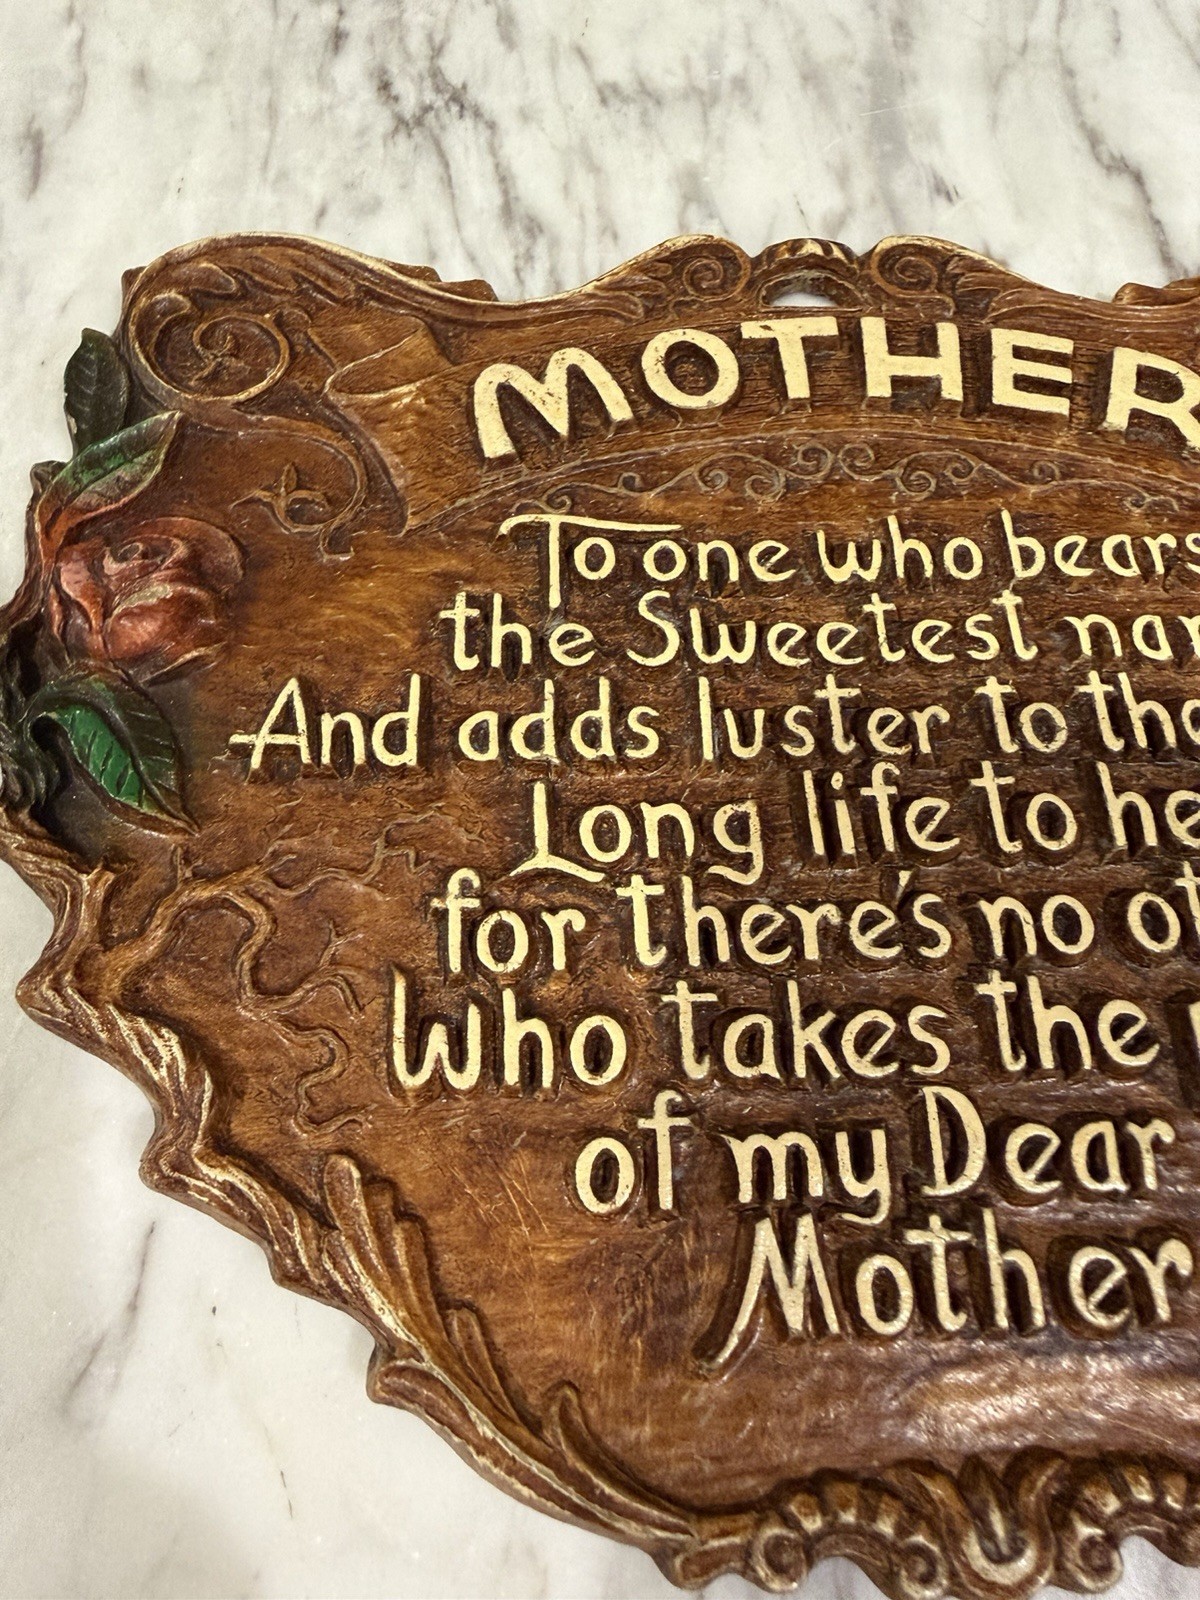 MOTHER
To one who bears
the Sweetest
And adds luster to
Long life to
for there's no
Who takes the
of my Dear
Mother